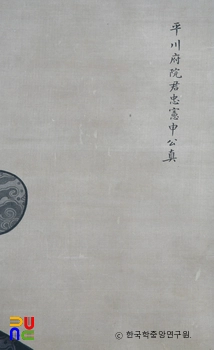 平川府院君忠憲申公真
© 한국학중앙연구원.